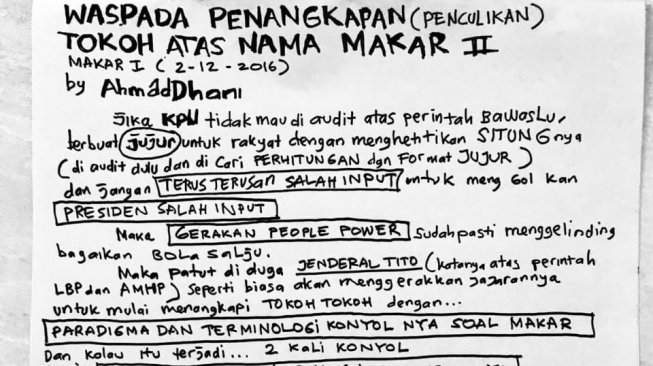 WASPADA PENANGKAPAN (PENCULIKAN)
TOKOH ATAS NAMA MAKAR II
MAKAR I (2-12-2016)
by AhmadDhani
Jika KPU tidak mau di audit atas perintah BAWASLU,
berbuat jujur untuk rakyat dengan menghentikan SITUNG nya
(di audit dulu dan di cari PERHITUNGAN dgn FORMAT JUJUR)
dan jangan TERUS TERUSAN SALAH INPUT untuk meng Gol kan
PRESIDEN SALAH INPUT
Maka GERAKAN PEOPLE POWER sudah pasti menggelinding
bagaikan BOLA SALJU.
Maka patut di duga JENDERAL TITO (katanya atas perintah
LBP dan AMHP) seperti biasa akan menggerakkan jajarannya
untuk mulai menangkapi TOKOH TOKOH dengan...
PARADIGMA DAN TERMINOLOGI KONYOL NYA SOAL MAKAR
Dan kalau itu terjadi... 2 kali KONYOL